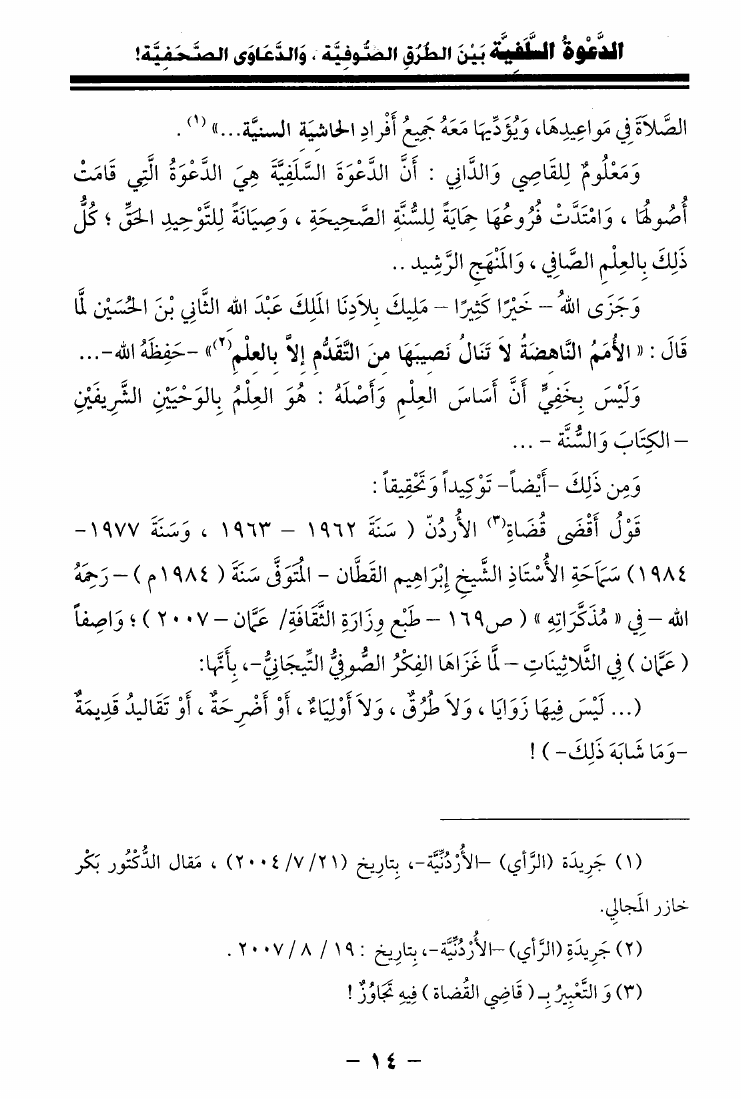 الدَّعْوَةُ السَّلَفِيَّة بَيْنَ الطُّرُقِ الصُّوفِيَّة ، وَالدَّعَاوَى الصَّحَفِيَّة!
الصَّلاَةَ فِي مَوَاعِيدِهَا، وَيُؤَدِّيهَا مَعَهُ جَمِيعُ أَفْرادِ الحَاشِيَة السنيَّة...» (١) .
وَمَعْلُومٌ لِلقَاصِي وَالدَّانِي : أَنَّ الدَّعْوَةَ السَّلَفِيَّةَ هِيَ الدَّعْوَةُ الَّتِي قَامَتْ
أُصُولُهَا ، وَامْتَدَّتْ فُرُوعُهَا حِمَايَةً لِلسُّنَّةِ الصَّحِيحَةِ ، وَصِيَانَةً لِلتَّوْحِيدِ الحَقِّ ؛ كُلُّ
ذَلِكَ بِالعِلْمِ الصَّافِي ، وَالمَنْهَجِ الرَّشِيد ..
وَجَزَى اللهُ – خَيْرًا كَثِيرًا – مَلِيكَ بِلاَدِنَا المَلِكَ عَبْدَ الله الثَّانِي بْنَ الحُسَيْن لَمَّا
قَالَ : « الأُمَمُ النَّاهضَةُ لاَ تَنَالُ نَصِيبَهَا مِنَ التَّقَدُّمِ إلاَّ بِالعلْمِ(٢)» –حَفِظَهُ الله–...
وَلَيْسَ بِخَفِيٍّ أَنَّ أَسَاسَ العِلْمِ وَأَصْلَهُ : هُوَ العِلْمُ بِالوَحْيَيْنِ الشَّرِيفَيْنِ
– الكِتَابَ وَالسُّنَّة – ...
وَمِن ذَلِكَ –أَيْضاً– تَوْكِيداً وَتَحْقِيقاً :
قَوْلُ أَقْضَى قُضَاةِ(٣) الأُردُنّ ( سَنَةَ ١٩٦٢ – ١٩٦٣ ، وَسَنَةَ ١٩٧٧–
١٩٨٤) سَمَاحَةِ الأُسْتَاذِ الشَّيخِ إِبْرَاهِيم القَطَّان – المُتَوَفَّى سَنَةَ (١٩٨٤م ) – رَحِمَهُ
الله – فِي « مُذَكَّرَاتِهِ » ( ص١٦٩ – طَبْع وِزَارَةِ الثَّقَافَةِ/ عَمَّان – ٢٠٠٧ ) ؛ وَاصِفاً
( عَمَّان ) فِي الثَّلاثِينَاتِ – لَمَّا غَزَاهَا الفِكْرُ الصُّوفِيُّ التِّيجَانِيُّ–، بِأَنَّهَا:
(... لَيْسَ فِيهَا زَوَايَا ، وَلاَ طُرُقٌ ، وَلاَ أَوْلِيَاءٌ ، أَوْ أَضْرِحَةٌ ، أَوْ تَقَاليدُ قَدِيمَةٌ
–وَمَا شَابَهَ ذَلِكَ– ) !
(١) جَرِيدَة (الرَّأي) –الأُرْدُنِّيَّة–، بِتاريخ (٢٠٠٤/٧/٢١) ، مَقال الدُّكْتُور بَكْر
خازر المَجالي.
(٢) جَرِيدَةِ (الرَّأي) –الأُرْدُنِّيَّة–، بتاريخ : ١٩ / ٨ / ٢٠٠٧ .
(٣) وَ التَّعْبِيرُ بِـ ( قَاضِي القُضاة ) فِيهِ تَجَاوُزٌ !
– ١٤ –